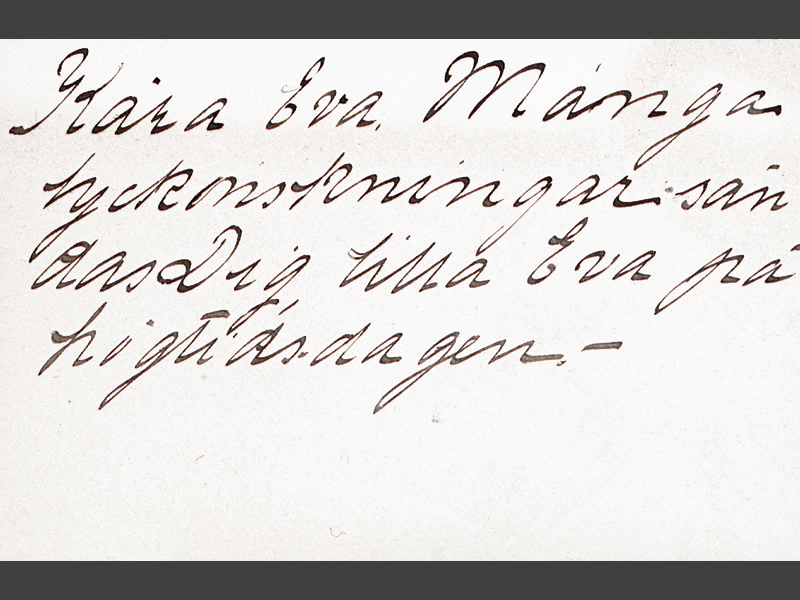 Kära Eva. Många
lyckonskningar sän
das Dig lilla Eva på
högtidsdagen. –